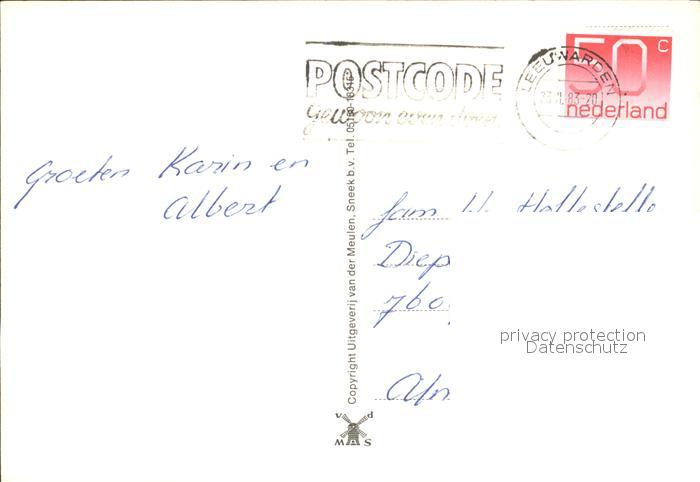 POSTCODE
gewoon even doen
LEEUWARDEN
83-20
50 c
nederland
Groeten Karin en
Albert
fam
Diep
760
privacy protection
Datenschutz
Copyright Uitgeverij van der Meulen, Sneek b.v. Tel. 05150-18345
v d
M S